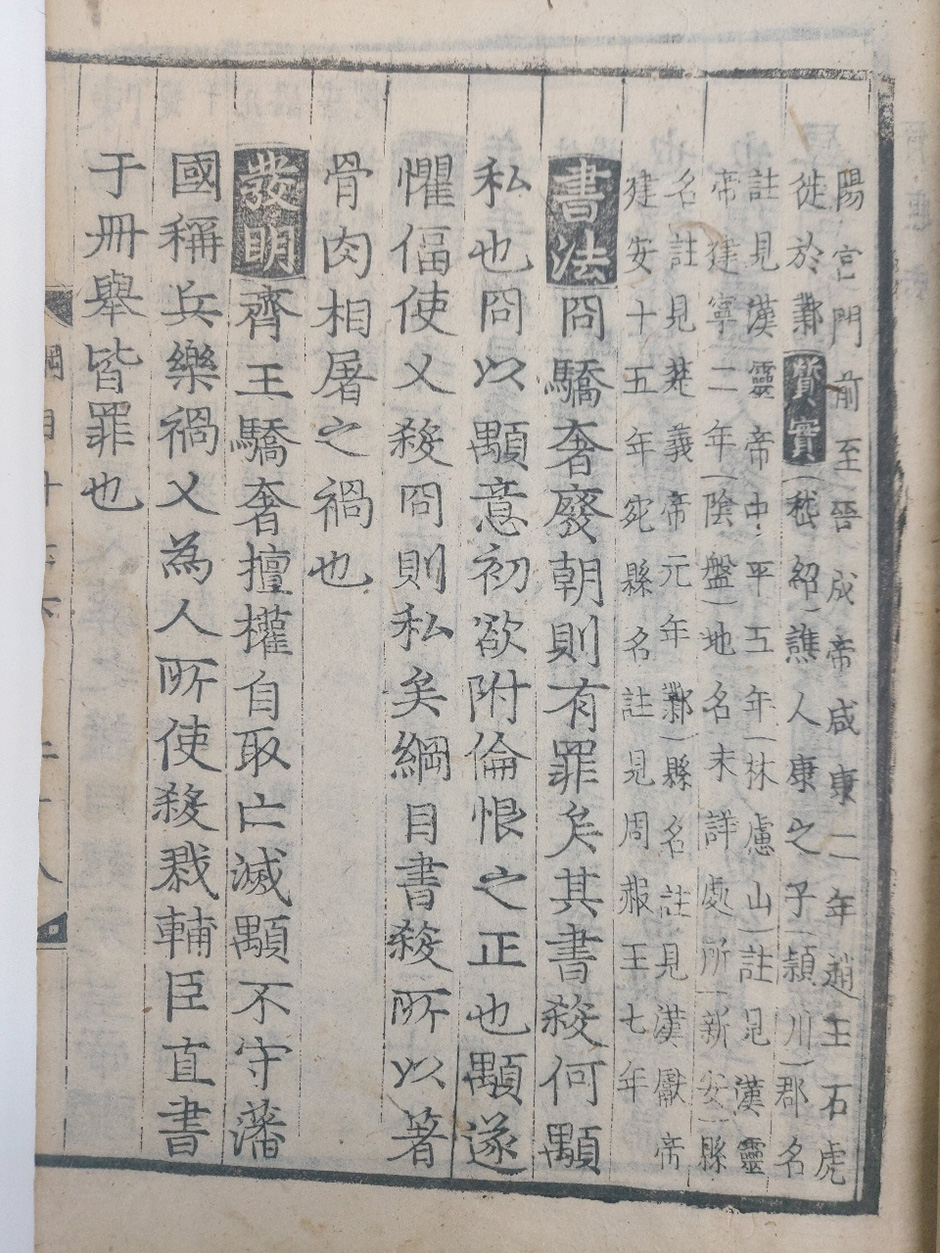 陽宮門前至晉成帝咸康二年趙王石虎
徙於鄴質實嵇紹譙人康之子潁川郡名
註見漢靈帝中平五年林慮山註見漢靈
帝建寧二年陰盤地名未詳處所新安縣
名註見楚義帝元年鄴縣名註見漢獻帝
建安十五年宛縣名註見周赧王七年
書法冏驕奢廢朝則有罪矣其書殺何顒
私也冏以顒意初欲附倫恨之正也顒遂
懼偪使乂殺冏則私矣綱目書殺所以著
骨肉相屠之禍也
發明齊王驕奢擅權自取亡滅顒不守藩
國稱兵樂禍乂為人所使殺戮輔臣直書
于冊舉皆罪也